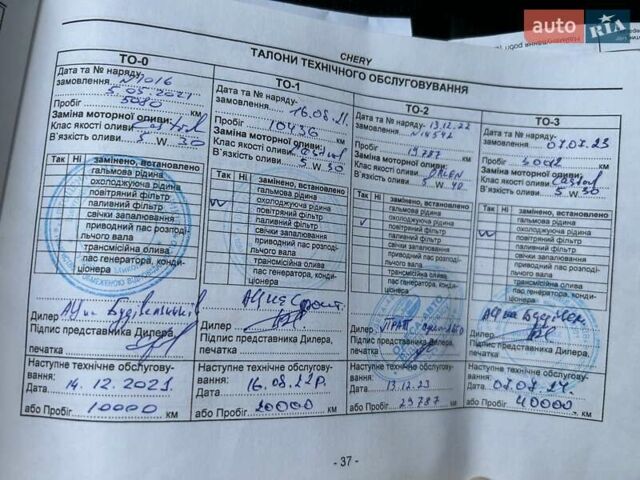 auto RIA
CHERY
ТАЛОНИ ТЕХНІЧНОГО ОБСЛУГОВУВАННЯ
ТО-0
Дата та № наряду-
замовлення... №7016
5 05.2021
Пробіг 5080 км
Заміна моторної оливи:
Клас якості оливи Castrol
В'язкість оливи 5 W 30
Так Ні замінено, встановлено
гальмова рідина
охолоджуюча рідина
повітряний фільтр
паливний фільтр
свічки запалювання
приводний пас розподі-
льчого вала
трансмісійна олива
пас генератора, конди-
ціонера
Дилер
Підпис представника Дилера,
печатка
Наступне технічне обслугову-
вання:
Дата 14.12.2021
або Пробіг 10000 км
ТО-1
Дата та № наряду-
замовлення 16.08.21.
Пробіг 10436 км
Заміна моторної оливи:
Клас якості оливи Castrol
В'язкість оливи 5 W 30
Так Ні замінено, встановлено
гальмова рідина
охолоджуюча рідина
повітряний фільтр
паливний фільтр
свічки запалювання
приводний пас розподі-
льчого вала
трансмісійна олива
пас генератора, конди-
ціонера
Дилер
Підпис представника Дилера,
печатка
Наступне технічне обслугову-
вання:
Дата 16.08.22р.
або Пробіг 20000 км
ТО-2
Дата та № наряду-
замовлення 13.12.22
Пробіг 19787 км
Заміна моторної оливи:
Клас якості оливи ORLEN
В'язкість оливи 5 W 40
Так Ні замінено, встановлено
гальмова рідина
охолоджуюча рідина
повітряний фільтр
паливний фільтр
свічки запалювання
приводний пас розподі-
льчого вала
трансмісійна олива
пас генератора, конди-
ціонера
Дилер
Підпис представника Дилера,
печатка
Наступне технічне обслугову-
вання:
Дата 13.12.23
або Пробіг 29787 км
ТО-3
Дата та № наряду-
замовлення 07.07.23
Пробіг км
Заміна моторної оливи:
Клас якості оливи Castrol
В'язкість оливи 5 W 30
Так Ні замінено, встановлено
гальмова рідина
охолоджуюча рідина
повітряний фільтр
паливний фільтр
свічки запалювання
приводний пас розподі-
льчого вала
трансмісійна олива
пас генератора, конди-
ціонера
Дилер
Підпис представника Дилера,
печатка
Наступне технічне обслугову-
вання:
Дата 07.07.24.
або Пробіг 40000 км
- 37 -